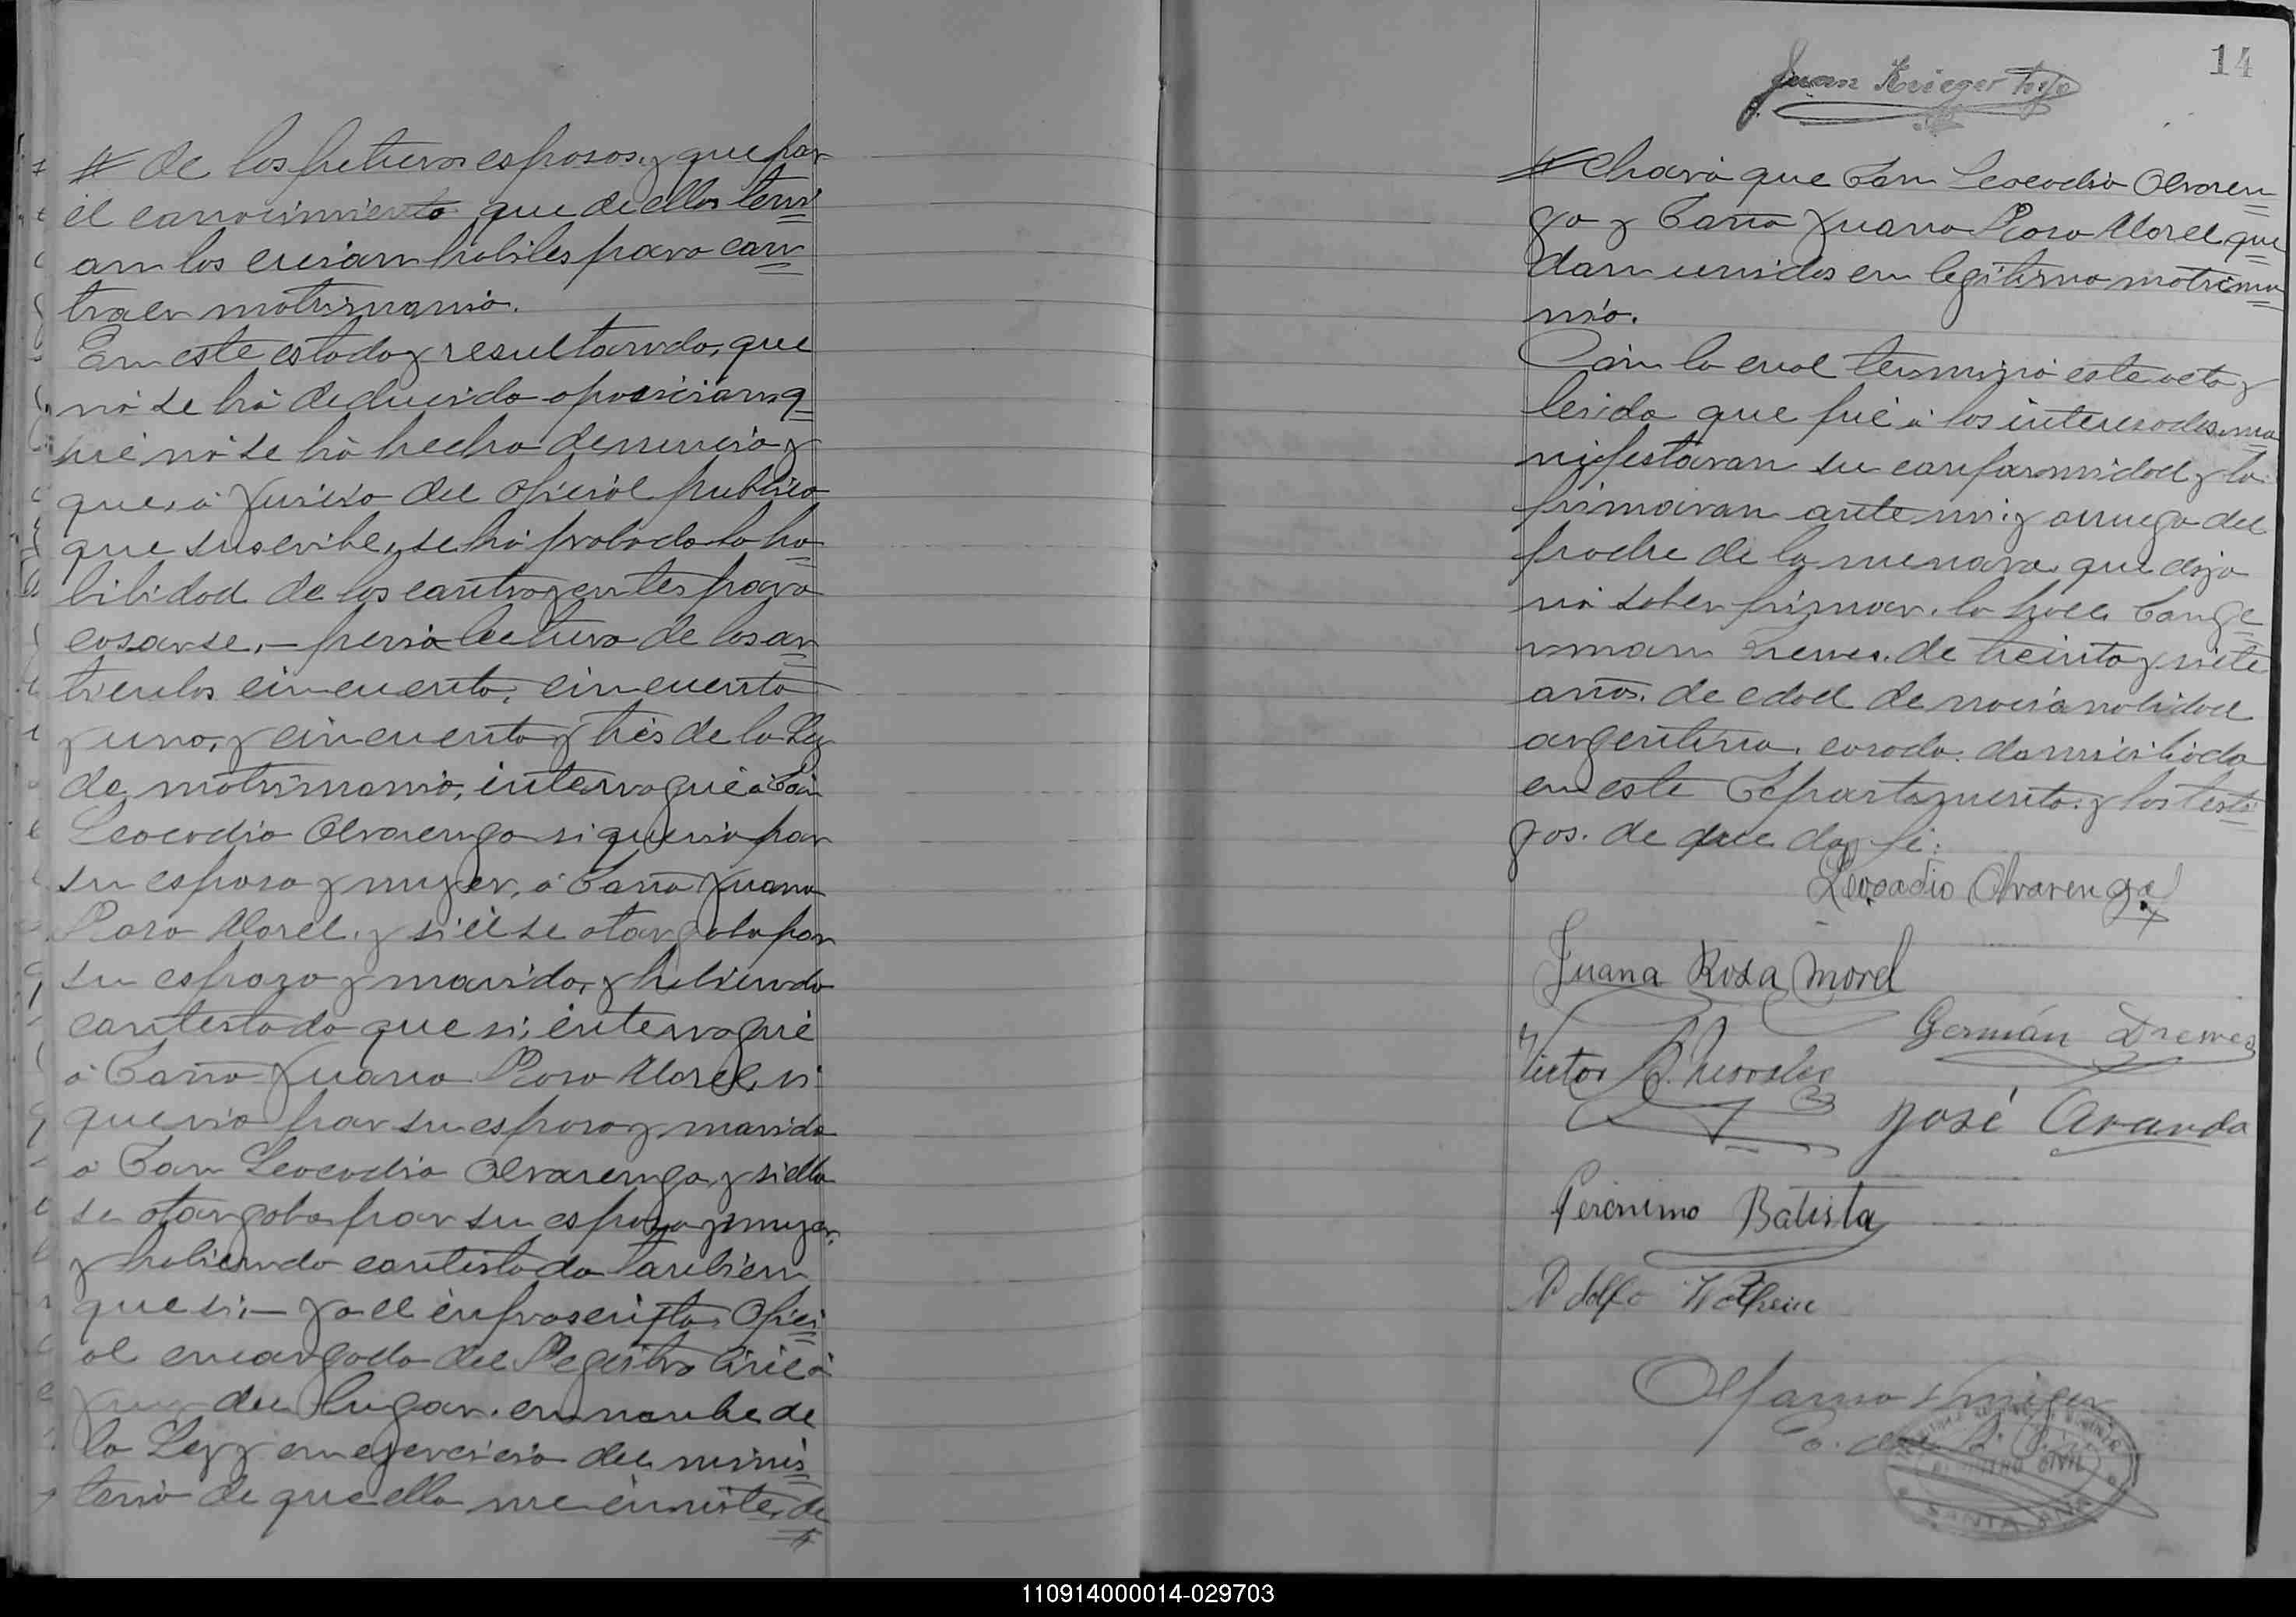 # de los futuros esposos, y que por
el conocimiento que de ellos teni=
an los creian habiles para con=
traer matrimonio.
En este estado y resultando, que
no se há deducido oposicion, q=
ué nó se há hecho denuncia y
que, á juicio del oficial publico
que suscribe, se há probado la ha=
bilidad de los contrayentes para
casarse, — previa lectura de los ar=
ticulos cincuenta, cincuenta
y uno, y cincuenta y trés de la Ley
de matrimonio, interrogué á Don
Leocadio Alvarenga si queria por
su esposa y mujer, á Doña Juana
Rosa Morel, y si él se otorgaba por
su esposo y marido, y habiendo
contestado que si, interrogué
á Doña Juana Rosa Morel, si
queria por su esposo y marido
á Don Leocadio Alvarenga, y si ella
se otorgaba por su esposa y mujer,
y habiendo contestado tambien
que si, — yo el infrascripto Ofici=
al encargado del Registro Civil á
del lugar, en nombre de
la Ley y en ejercicio del minis=
terio de que ella me inviste, de
#
14
Juan Krieger hijo
# claro que Don Leocadio Alvaren=
ga y Doña Juana Rosa Morel, que=
dan unidos en legitimo matrimo=
nio.
Con lo cual terminó este acto y
leido que fué á los interesados, ma=
nifestaron su conformidad y la
firmaron ante mi; y a ruego del
padre de la menor, que dijo
nó saber firmar, lo hace Don Ge=
rman Drewes, de treinta y siete
años, de edad de nacionalidad
argentina, casado, domiciliado
en este Departamento, y los testi=
gos. de que doy fé:
Leocadio Alvarenga
Juana Rosa Morel
Germán Drewes
Victor
José Aranda
Gerónimo Batista
Adolfo
REGISTRO CIVIL
SANTA ANA
110914000014-029703